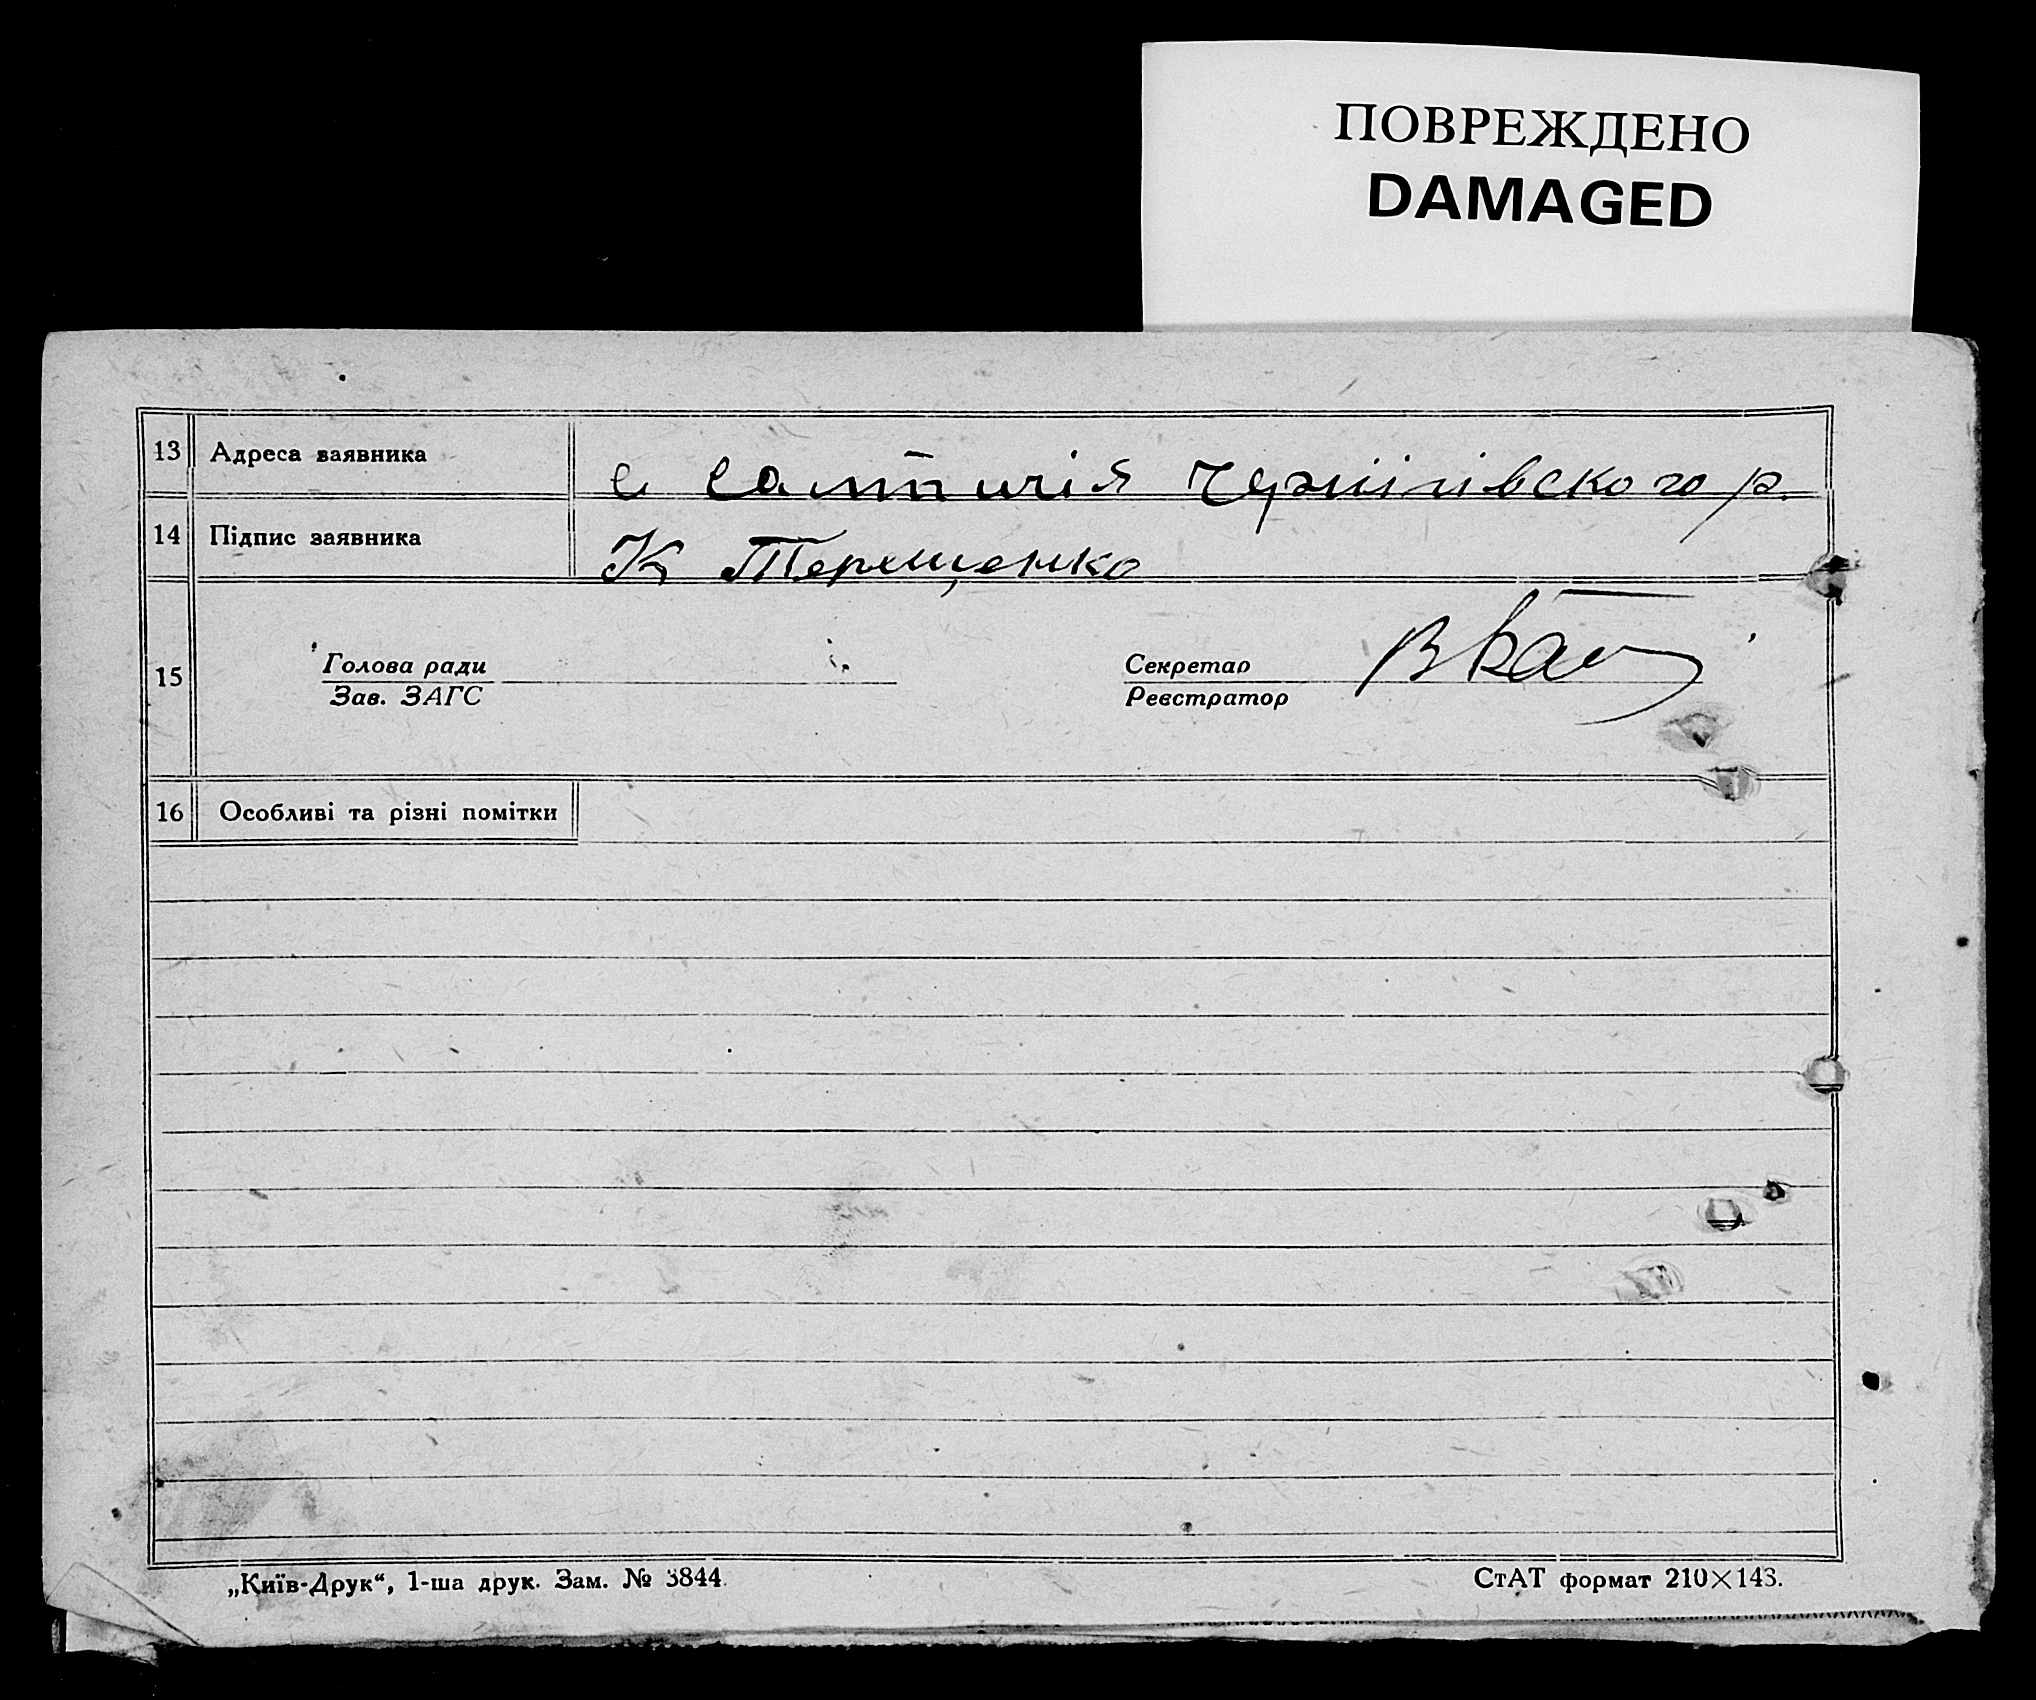 ПОВРЕЖДЕНО
DAMAGED
13 Адреса заявника с Салтичія Чернігівского р.
14 Підпис заявника К Терещенко
15 Голова ради Секретар
Зав. ЗАГС Реєстратор
16 Особливі та різні помітки
„Київ-Друк“, 1-ша друк. Зам. № 3844. СтАТ формат 210×143.